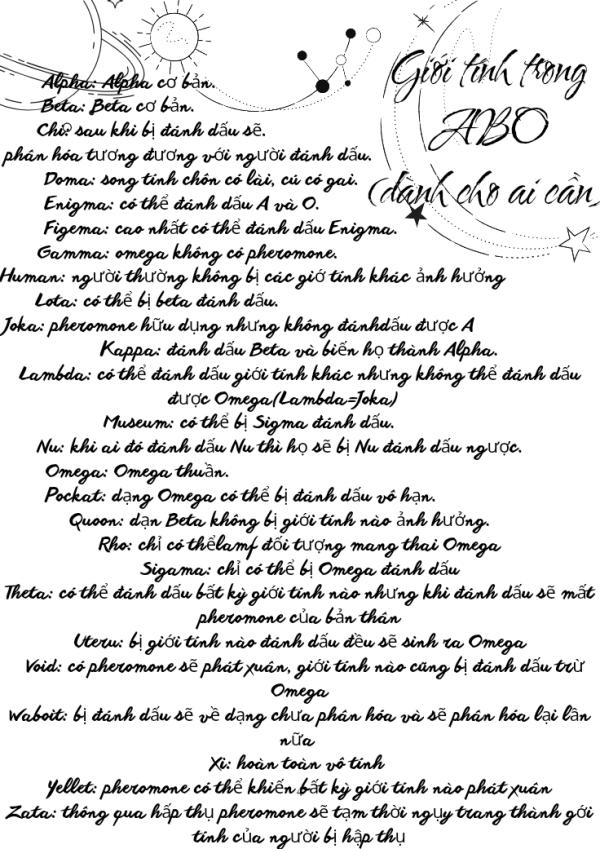 Giới tính trong
ABO
(dành cho ai cần)
Alpha: Alpha cơ bản.
Beta: Beta cơ bản.
Chi? sau khi bị đánh dấu sẽ.
phân hóa tương đương với người đánh dấu.
Doma: song tính chôn có lài, cú có gai.
Enigma: có thể đánh dấu A và O.
Figema: cao nhất có thể đánh dấu Enigma.
Gamma: omega không có pheromone.
Human: người thường không bị các giớ tính khác ảnh hưởng
Lota: có thể bị beta đánh dấu.
Joka: pheromone hữu dụng nhưng không đánhdấu được A
Kappa: đánh dấu Beta và biến họ thành Alpha.
Lambda: có thể đánh dấu giới tính khác nhưng không thể đánh dấu
được Omega(Lambda=Joka)
Museum: có thể bị Sigma đánh dấu.
Nu: khi ai đó đánh dấu Nu thì họ sẽ bị Nu đánh dấu ngược.
Omega: Omega thuần.
Pockat: dạng Omega có thể bị đánh dấu vô hạn.
Quoon: dạn Beta không bị giới tính nào ảnh hưởng.
Rho: chỉ có thểlamf đối tượng mang thai Omega
Sigama: chỉ có thể bị Omega đánh dấu
Theta: có thể đánh dấu bất kỳ giới tính nào nhưng khi đánh dấu sẽ mất
pheromone của bản thân
Uteru: bị giới tính nào đánh dấu đều sẽ sinh ra Omega
Void: có pheromone sẽ phát xuân, giới tính nào cũng bị đánh dấu trừ
Omega
Waboit: bị đánh dấu sẽ về dạng chưa phân hóa và sẽ phân hóa lại lần
nữa
Xi: hoàn toàn vô tính
Yellet: pheromone có thể khiến bất kỳ giới tính nào phát xuân
Zata: thông qua hấp thụ pheromone sẽ tạm thời ngụy trang thành gới
tính của người bị hập thụ